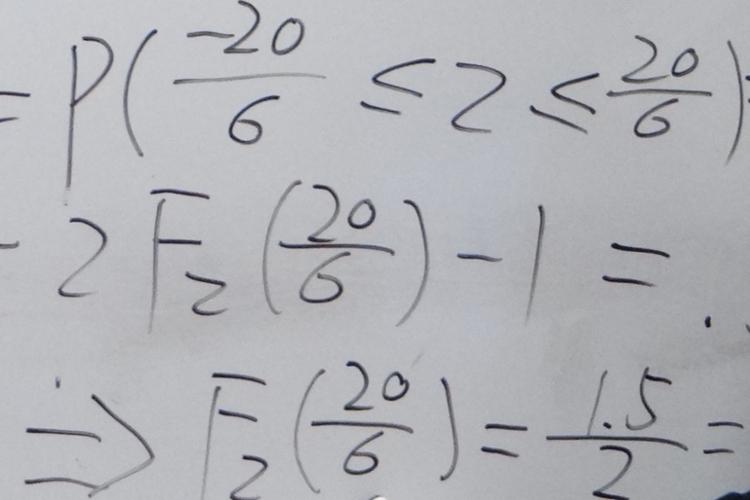 = P(-20/6 ≤ Z ≤ 20/6) =
- 2F_Z(20/6) - 1 = .
⇒ F_Z(20/6) = 1.5/2 =